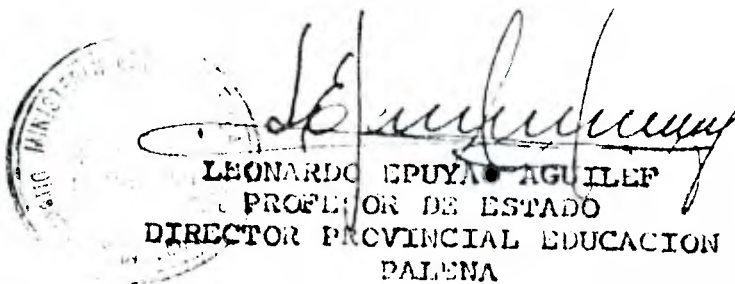 MINISTERIO
LEONARDO EPUYA AGUILEF
PROFESOR DE ESTADO
DIRECTOR PROVINCIAL EDUCACION
PALENA